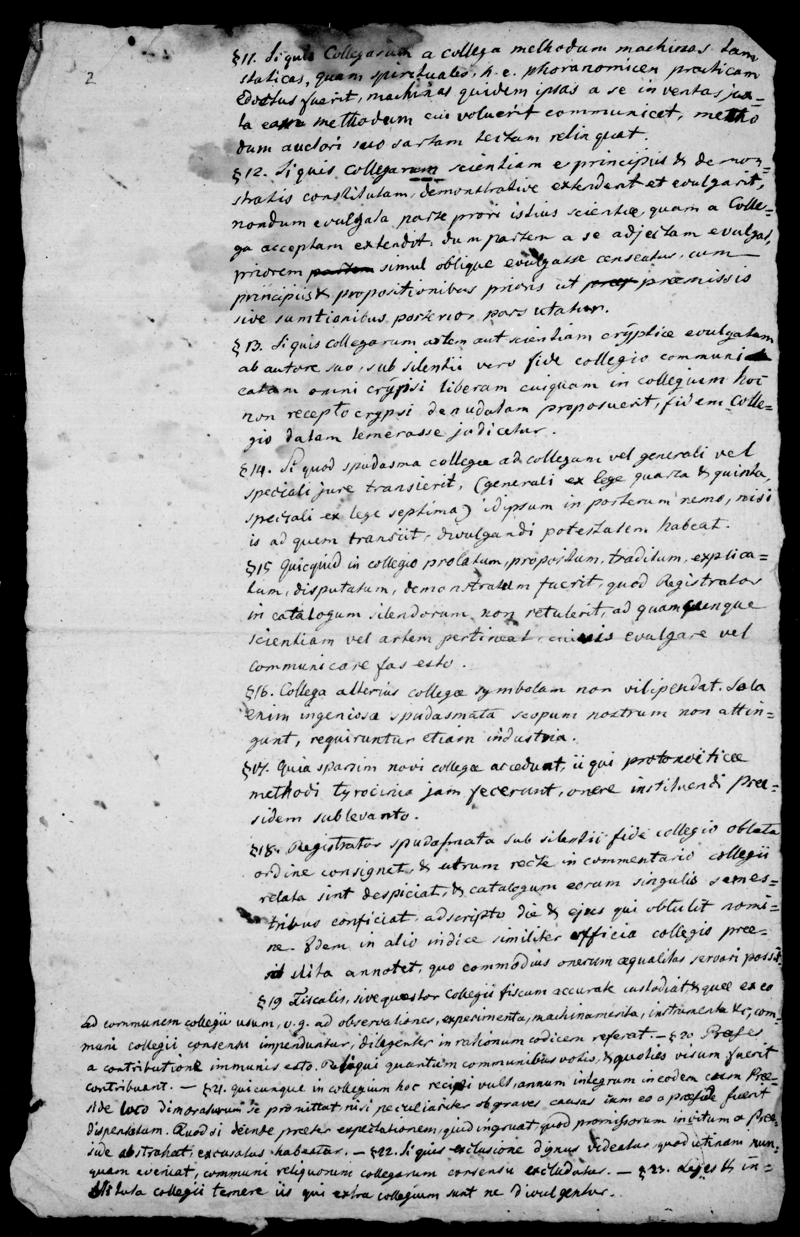 2
§11. Si quis Collegarum a collega methodum machinas tam
staticas, quam spirituales, h. e. phoranomicen practicam
edoctus fuerit, machinas quidem ipsas a se inventas jux=
ta eam methodum cui voluerit communicet, metho
dum auctori suo sartam tectam relinquat.
§12. Si quis collegarum scientiam e principiis & demon=
stratis constitutam, demonstrative extenderit et evulgarit,
nondum evulgata parte priori istius scientiæ, quam a Colle=
ga acceptam extendit: dum partem a se adjectam evulgat,
priorem partem simul oblique evulgasse censeatur, cum
principiis & propositionibus prioris ut præmissis
sive sumtionibus posterior pars utatur.
§13. Si quis collegarum artem aut scientiam crÿptice evulgatam
ab autore suo, sub silentii vero fide collegio communi
catam omni crÿpsi liberam cuiquam in collegium hoc
non recepto crypsi denudatam proposuerit, fidem Colle=
gio datam temerasse judicetur.
§14. Si quod spudasma collegæ ad collegam vel generali vel
speciali jure transierit, (generali ex lege quarta & quinta,
speciali ex lege septima) id ipsum in posterum nemo, nisi
is ad quem transiit, divulgandi potestatem habeat.
§15 Quicquid in collegio prolatum, propositum, traditum, explica=
tum, disputatum, demonstratum fuerit, quod Registrator
in catalogum silendorum non retulerit, ad quamcunque
scientiam vel artem pertineat, cuivis evulgare vel
communicare fas esto.
§16. Collega alterius collegæ symbolam non vilipendat. Sola
enim ingeniosa spudasmata scopum nostrum non attin=
gunt, requiruntur etiam industria.
§17. Quia sparsim novi collegæ accedunt, ii qui protonoëticæ
methodi tyrocinia jam fecerunt, onere instituendi Præ=
sidem sublevanto.
§18. Registrator spudasmata sub silentii fide collegio oblata
ordine consignet, & utrum recte in commentario collegii
relata sint despiciat, & catalogum eorum singulis semes=
tribus conficiat, adscripto die & ejus qui obtulit nomi=
ne. Idem in alio indice similiter officia collegio præ=
stita annotet, quo commodius onerum æqualitas servari possit.
§19 Fiscalis, sive quæstor Collegii fiscum accurate custodiat, & quæ ex eo
ad communem collegii usum, v. g. ad observationes, experimenta, machinamenta, instrumenta &c, com=
muni collegii consensu impenduntur, diligenter in rationum codicem referat. — §20 Præses
a contributione immunis esto. Reliqui quantum communibus votis, & quoties visum fuerit
contribuant. — §21. quicunque in collegium hoc recipi vult, annum integrum in eodem cum Præ=
side loco dimoraturum se promittat, nisi peculiariter ob graves causas cum eo a præside fuerit
dispensatum. Quod si deinde præter expectationem, quid ingruat, quod promissorum invitum a Præ=
side abstrahat, excusatus habeatur. — §22. Si quis exclusione dignus videatur, quod utinam nun=
quam eveniat, communi reliquorum collegarum consensu excludatur. — §23. Leges & in=
stituta collegii temere iis qui extra collegium sunt ne divulgentur.